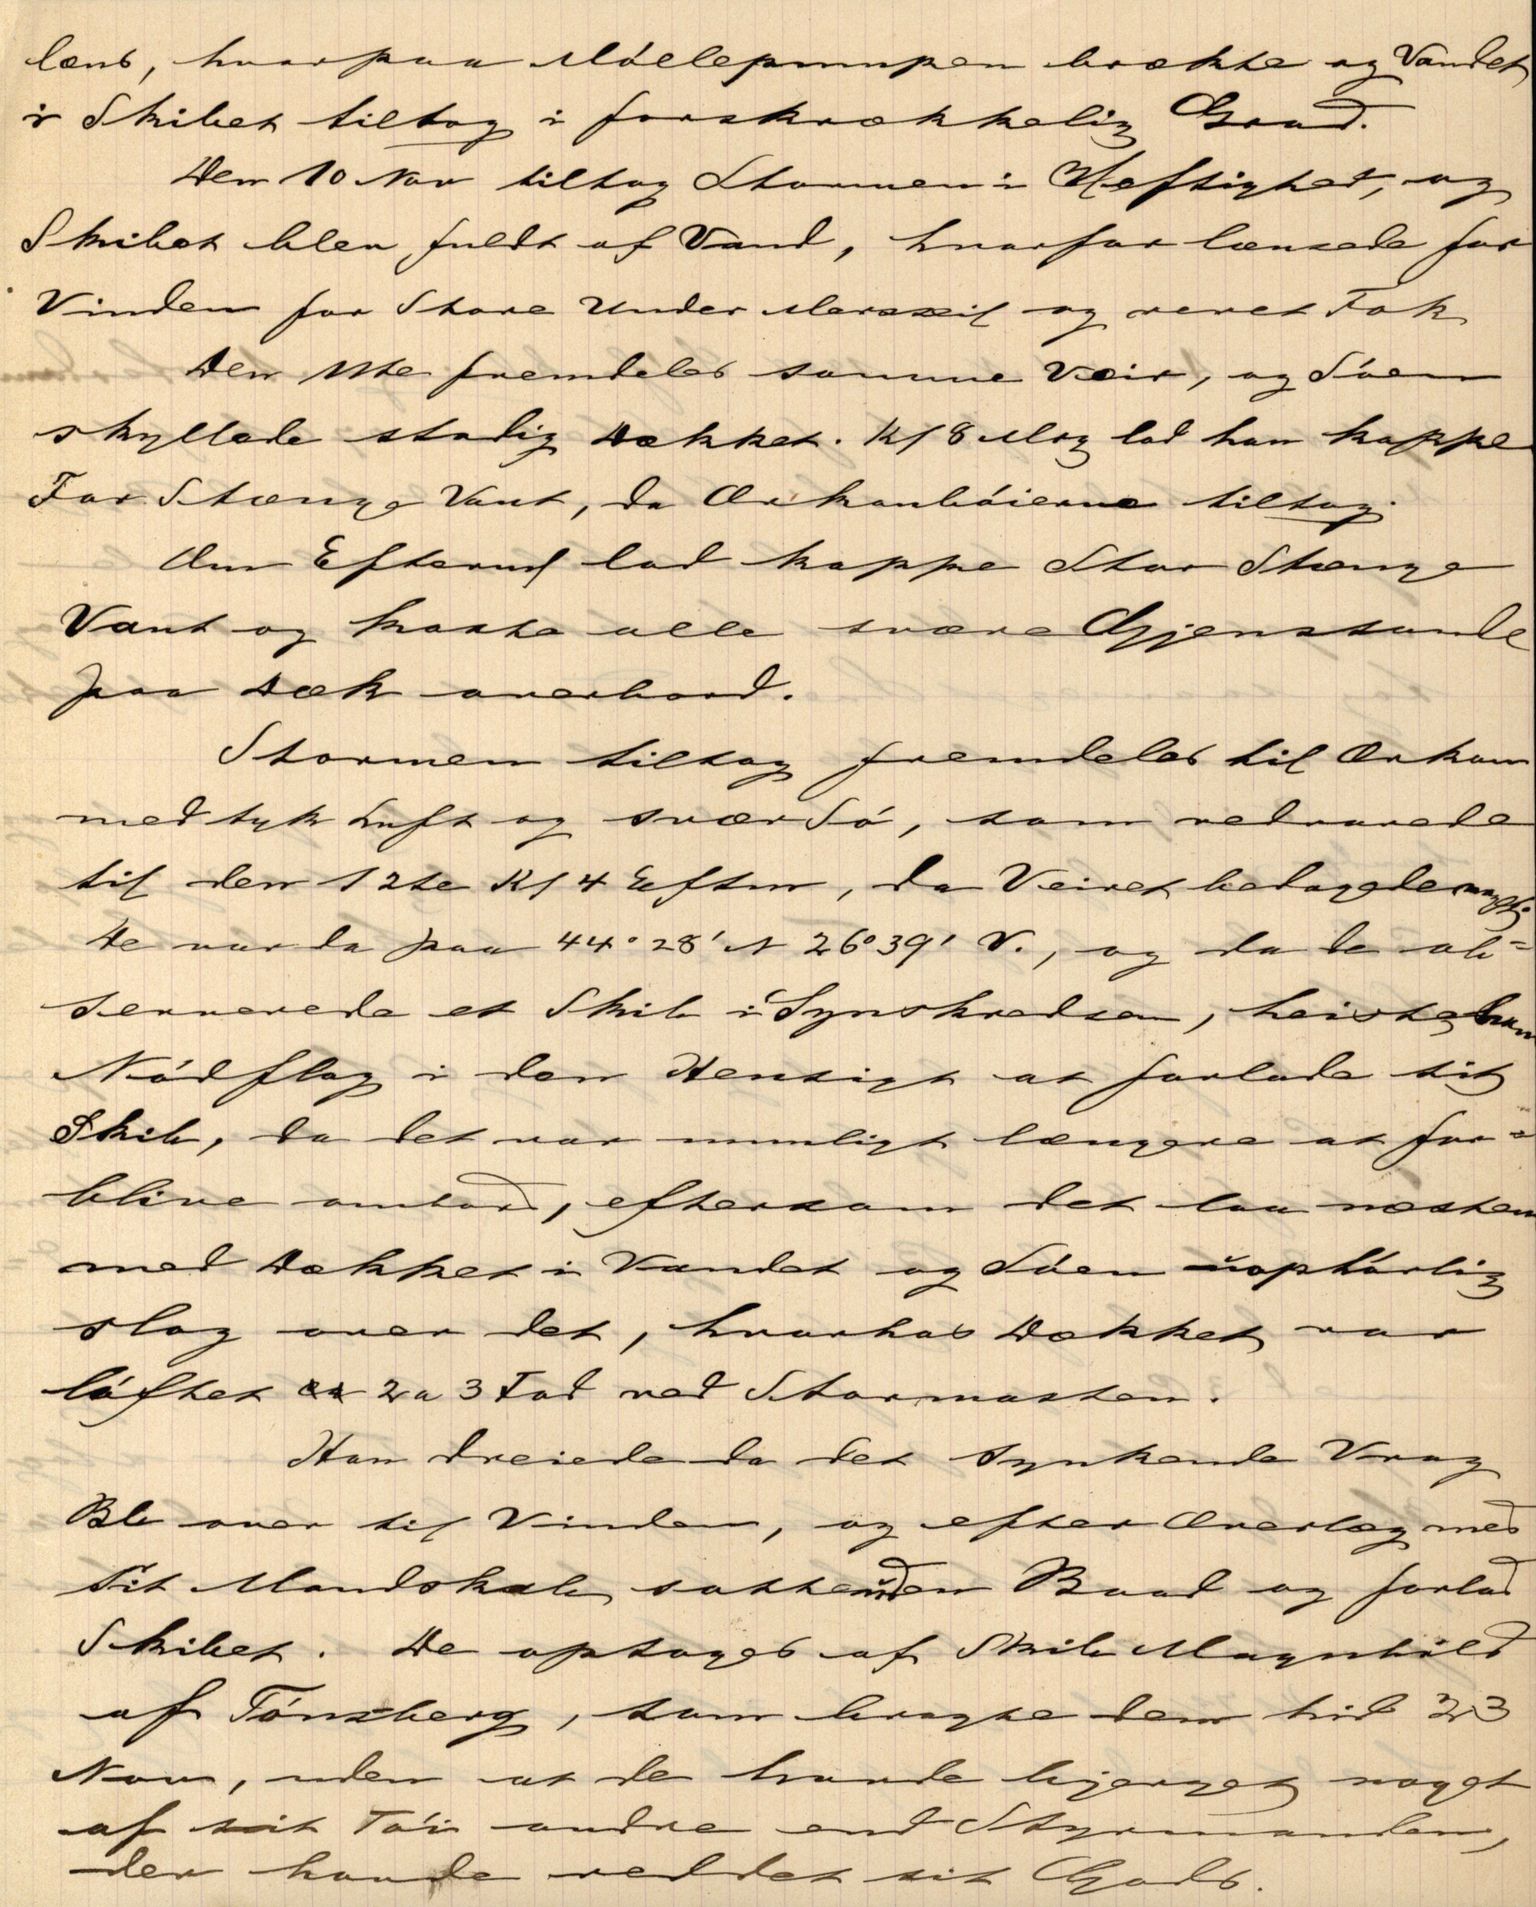 læns, hvorpaa Møllepumpen brækte og Vandet
i Skibet tiltog i forskrækkelig Grad.
Den 10 Nov tiltog Stormen i Heftighed, og
Skibet blev fuldt af Vand, hvorfor lænsede for
Vinden for Store Under Mersseil og revet Fok
Den 11te fremdeles samme Veir, og Søen
skyllede stadig Dækket. Kl 8 Mrg lod han kappe
For Stænge Vant, da Orkanbøierne tiltog.
Om Efterm lod kappe Stor Stænge
Vant og kaste alle svære Gjenstande
paa Dæk overbord.
Stormen tiltog fremdeles til Orkan
med tyk Luft og svær Sø, som vedvarede
til den 12te Kl 4 Efterm, da Veiret bedagede
De var da paa 44° 28' N 26° 39' V., og da de ob=
serverede et Skib i Synskredsen, heiste han
Nødflag i den Hensigt at forlade sit
Skib, da det var umuligt længere at for=
blive ombord, eftersom det laa næsten
med Dækket i Vandet og Søen uophørlig
slog over det, hvorhos Dækket var
løftet ca 2 a 3 Fod ved Stormasten.
Han dreiede da det synkende Vrag
Bb over til Vinden, og efter Overlæg med
sit Mandskab satte den Baad og forlod
Skibet. De optoges af Skib Magnhild
af Tønsberg, som bragte dem hid 23
Nov, uden at de havde bjerget noget
af sit Tøi andre end Styrmanden,
der havde reddet sit Gods.